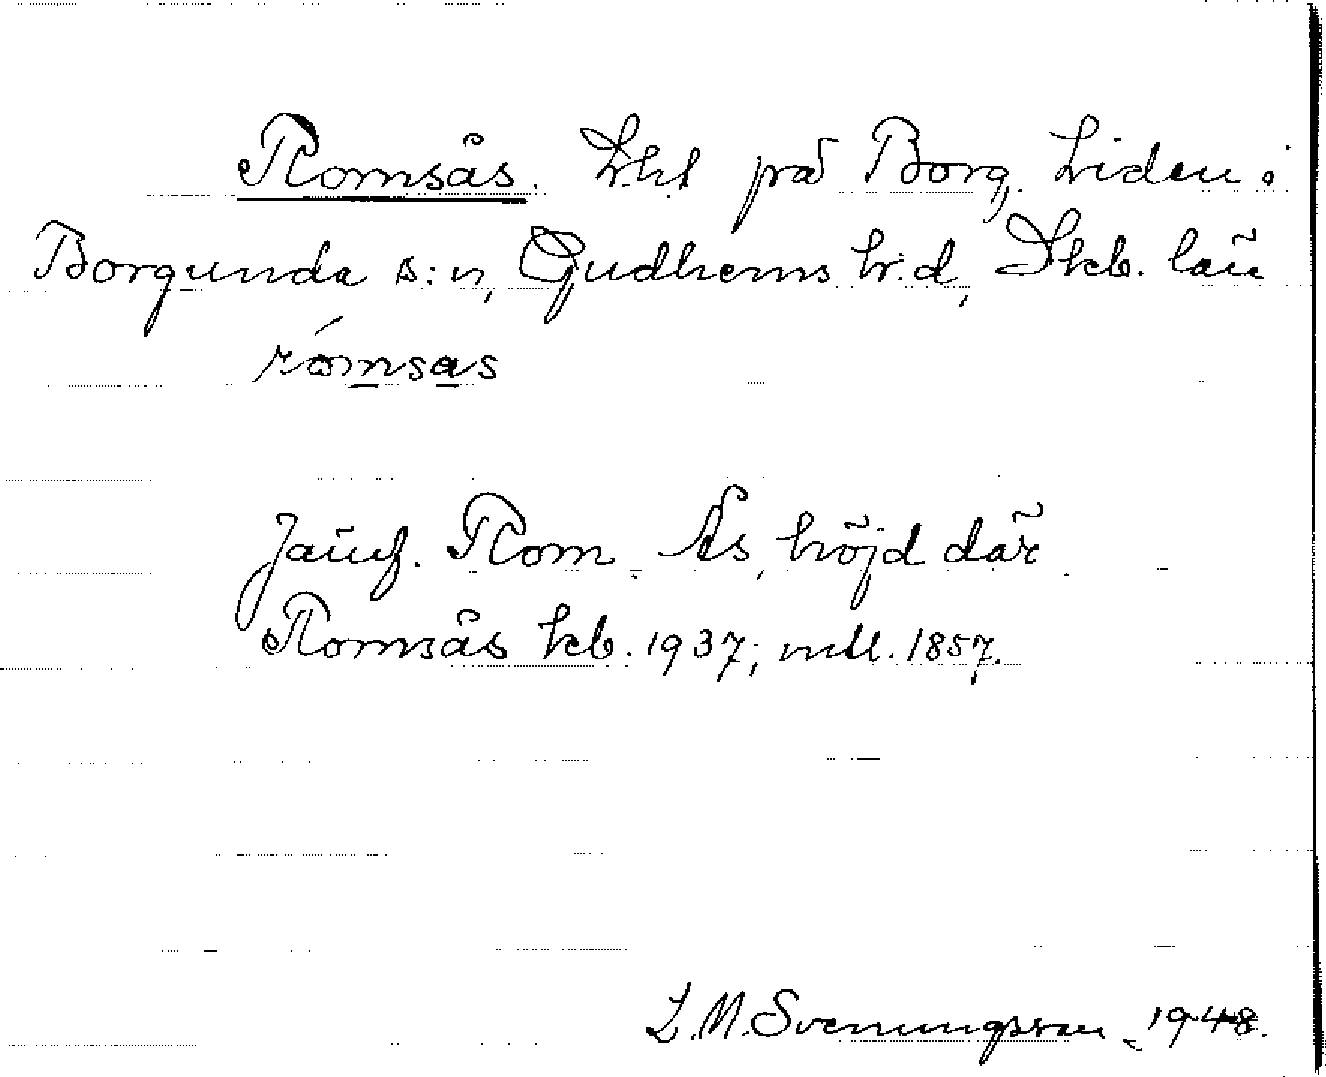 Romsås. Lht på Borg, Liden i
Borgunda s:n, Gudhems hr:d, Skb. län
rómsas
Jämf. Rom. Ås, höjd där
Romsås kb. 1937; mtl. 1857.
L. M. Svenungsson 1948.